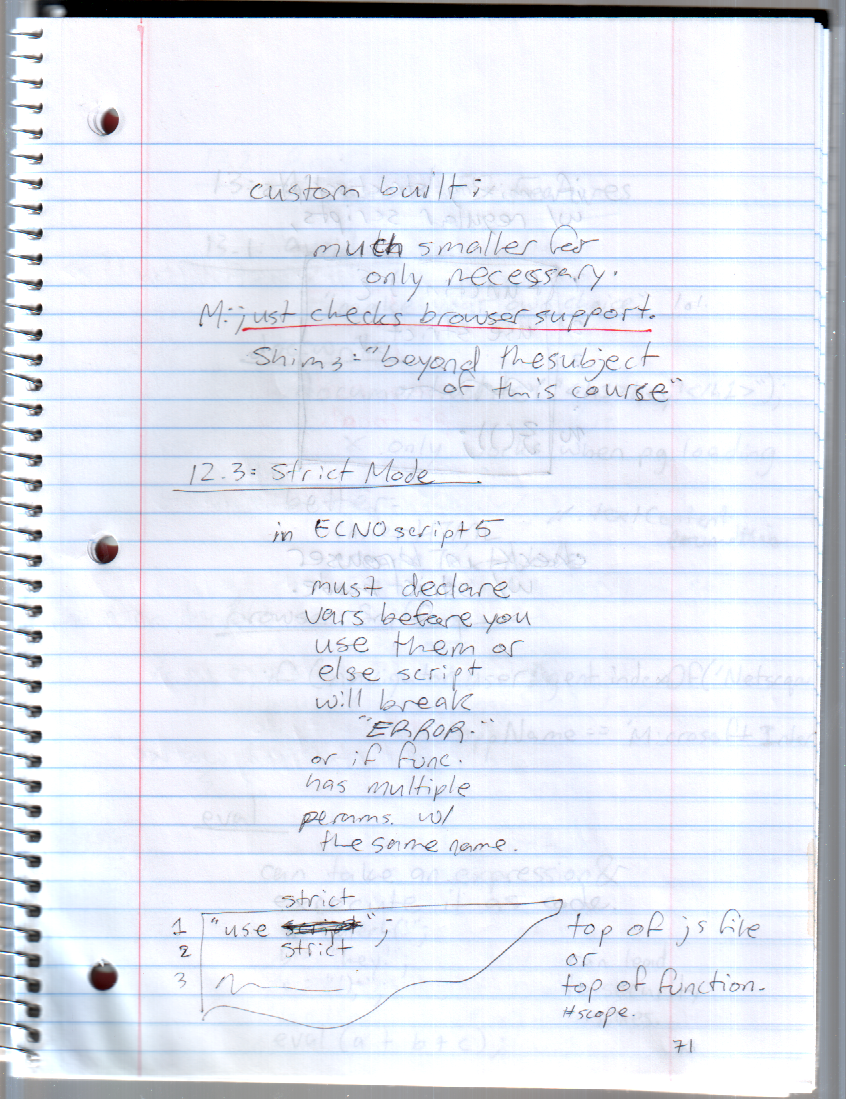 custom built:
much smaller for
only necessary.
M: just checks browser support.
Shim 3: "beyond the subject
of this course"
12.3: Strict Mode
in ECNOscript 5
must declare
vars before you
use them or
else script
will break
"ERROR."
or if func.
has multiple
perams. w/
the same name.
strict
1 "use script";
2 strict
3
top of js file
or
top of function.
#scope.
71